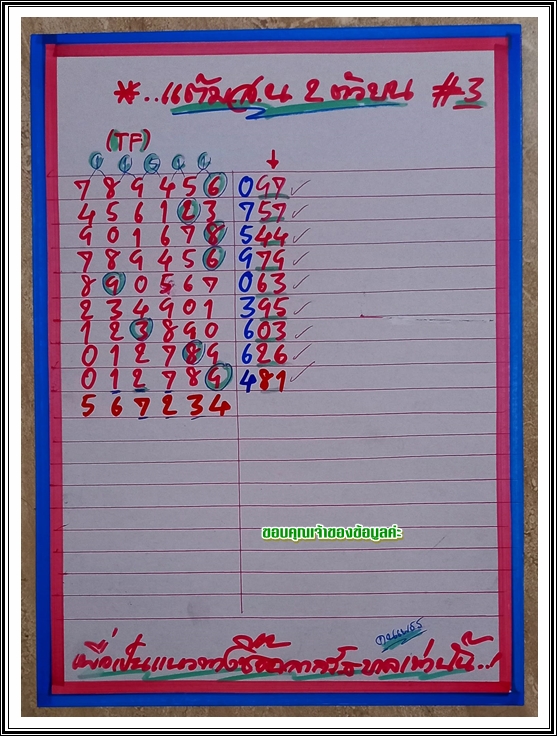 *..แต้มสน 2 ตัวบน #3
(TF)
1 1 5 1 1
7 8 9 4 5 6 097 ✓
4 5 6 1 2 3 757 ✓
9 0 1 6 7 8 544 ✓
7 8 9 4 5 6 979 ✓
8 9 0 5 6 7 063 ✓
2 3 4 9 0 1 395 ✓
1 2 3 8 9 0 603 ✓
0 1 2 7 8 9 626 ✓
0 1 2 7 8 9 481 ✓
5 6 7 2 3 4
ขอบคุณเจ้าของข้อมูลค่ะ
เพื่อเป็นแนวทางซื้อสลากรัฐบาลเท่านั้น..!